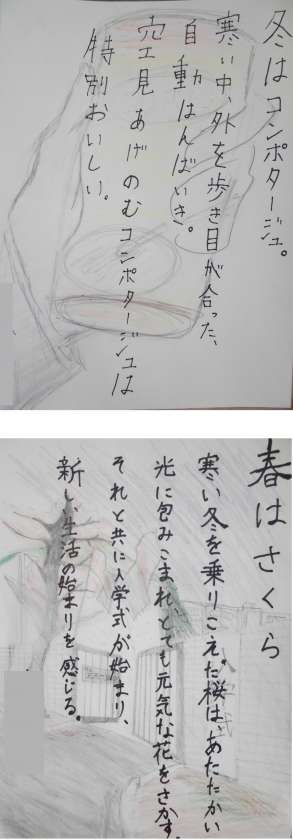 冬はコンポタージュ。
寒い中、外を歩き目が合った、
自動はんばいき。
空見あげのむコンポタージュは
特別おいしい。
春はさくら
寒い冬を乗りこえた桜は、あたたかい
光に包みこまれ、とても元気な花をさかす。
それと共に入学式が始まり、
新しい生活の始まりを感じる。